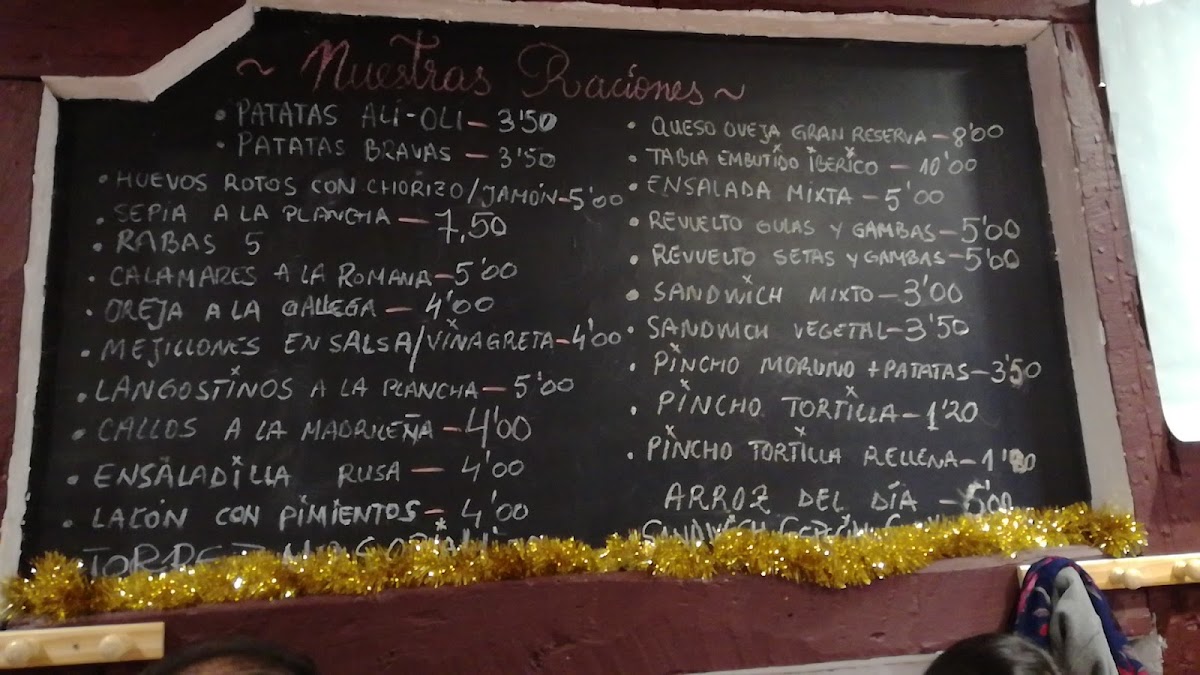 ~ Nuestras Raciones ~
• PATATAS ALI-OLI — 3'50
• PATATAS BRAVAS — 3'50
• HUEVOS ROTOS CON CHORIZO/JAMÓN — 5'00
• SEPIA A LA PLANCHA — 7,50
• RABAS 5
• CALAMARES A LA ROMANA — 5'00
• OREJA A LA GALLEGA — 4'00
• MEJILLONES EN SALSA/VINAGRETA — 4'00
• LANGOSTINOS A LA PLANCHA — 5'00
• CALLOS A LA MADRILEÑA — 4'00
• ENSALADILLA RUSA — 4'00
• LACÓN CON PIMIENTOS — 4'00
• QUESO OVEJA GRAN RESERVA — 8'00
• TABLA EMBUTIDO IBERICO — 10'00
• ENSALADA MIXTA — 5'00
• REVUELTO GULAS Y GAMBAS — 5'00
• REVUELTO SETAS Y GAMBAS — 5'00
• SANDWICH MIXTO — 3'00
• SANDWICH VEGETAL — 3'50
• PINCHO MORUNO + PATATAS — 3'50
• PINCHO TORTILLA — 1'20
• PINCHO TORTILLA RELLENA —
ARROZ DEL DÍA — 5'00
SANDWICH